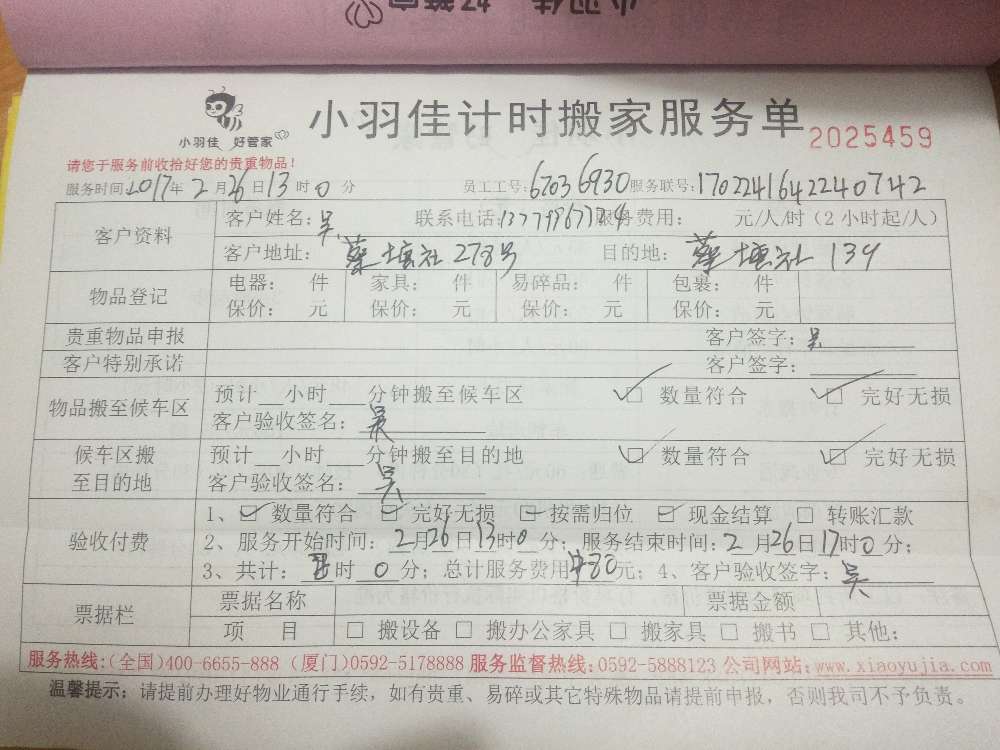 小羽佳 好管家
小羽佳计时搬家服务单 2025459
请您于服务前收拾好您的贵重物品！
服务时间：2017年2月26日13时0分 员工工号：6703 6930 服务联号：1702241642240742
客户资料 客户姓名：吴 联系电话：服务费用： 元/人/时（2小时起/人）
客户地址：蔡塘社278号 目的地：蔡塘社139
物品登记 电器： 件 家具： 件 易碎品： 件 包裹： 件
保价： 元 保价： 元 保价： 元 保价： 元
贵重物品申报 客户签字：吴
客户特别承诺 客户签字：
物品搬至候车区 预计__小时___分钟搬至候车区 ☑ 数量符合 ☑ 完好无损
客户验收签名：吴
候车区搬至目的地 预计__小时___分钟搬至目的地 ☑ 数量符合 ☑ 完好无损
客户验收签名：吴
验收付费 1、☑ 数量符合 ☑ 完好无损 ☑ 按需归位 ☑ 现金结算 □ 转账汇款
2、服务开始时间：2月26日13时0分；服务结束时间：2月26日17时0分；
3、共计：时0分；总计服务费用元；4、客户验收签字：吴
票据栏 票据名称 票据金额
项 目 □ 搬设备 □ 搬办公家具 □ 搬家具 □ 搬书 □ 其他：
服务热线：（全国）400-6655-888（厦门）0592-5178888 服务监督热线：0592-5888123 公司网站：www.xiaoyujia.com
温馨提示：请提前办理好物业通行手续，如有贵重、易碎或其它特殊物品请提前申报，否则我司不予负责。